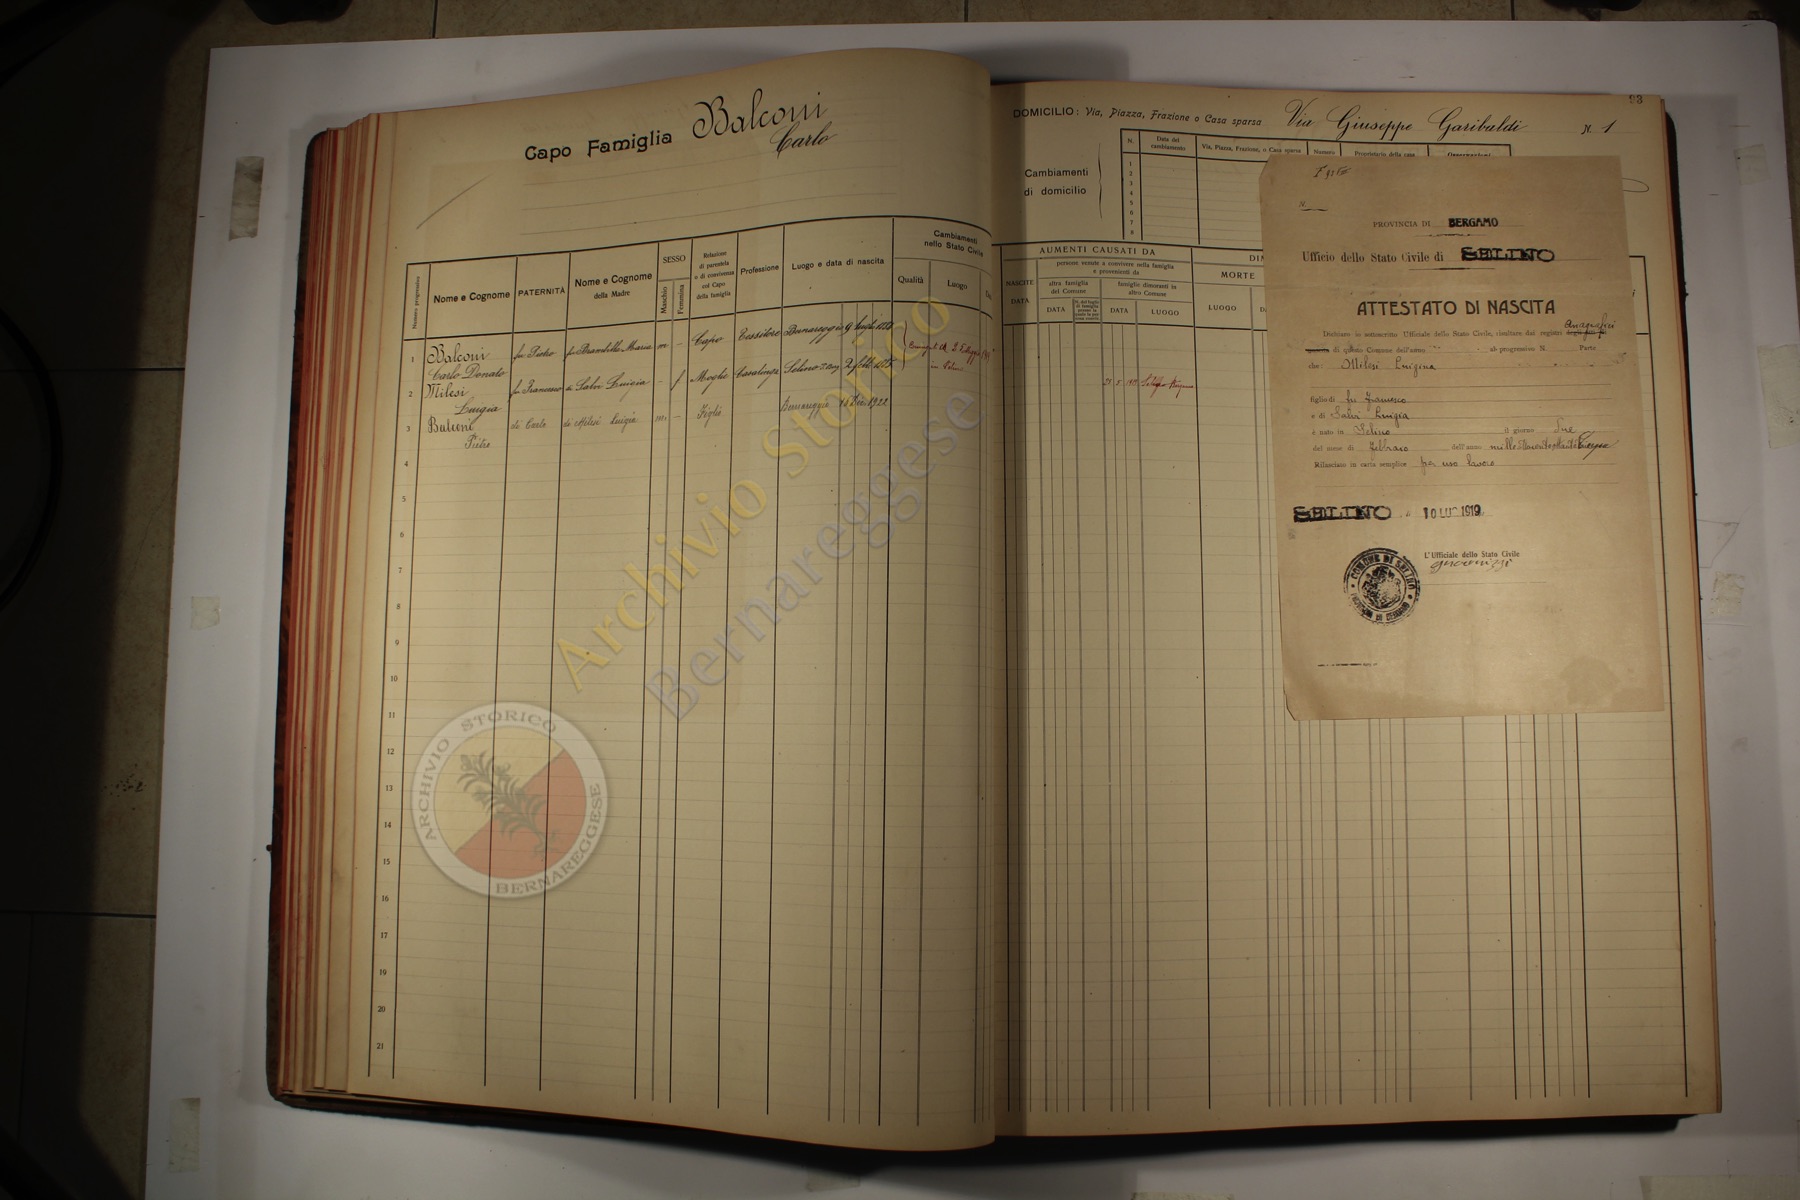 Capo Famiglia Balconi
Carlo
Numero progressivo
Nome e Cognome
PATERNITÀ
Nome e Cognome
della Madre
SESSO
Maschio
Femmina
Relazione
di parentela
o di convivenza
col Capo
della famiglia
Professione
Luogo e data di nascita
Cambiamenti
nello Stato Civile
Qualità
Luogo
1
Balconi fu Pietro fu Brambilla Maria m - Capo Tessitore Bernareggio 9 luglio
Carlo Donato
2
Milesi fu Francesco di Salvi Luigia - f Moglie Casalinga Selino 2 febb.
Luigia
3
Balconi di Carlo di Milesi Luigia m. - Figlio Bernareggio 16 Dic. 1922
Pietro
in Selino
4
5
6
7
8
9
10
11
12
13
14
15
16
17
18
19
20
21
93
DOMICILIO: Via, Piazza, Frazione o Casa sparsa Via Giuseppe Garibaldi N. 1
Cambiamenti
di domicilio
N.
Data del
cambiamento
Via, Piazza, Frazione, o Casa sparsa
Numero
Proprietario della casa
Osservazioni
1
2
3
4
5
6
7
8
AUMENTI CAUSATI DA
NASCITE
DATA
persone venute a convivere nella famiglia
e provenienti da
altra famiglia
del Comune
famiglie dimoranti in
altro Comune
DATA
DATA
LUOGO
MORTE
LUOGO
N.
PROVINCIA DI BERGAMO
Ufficio dello Stato Civile di SELINO
ATTESTATO DI NASCITA
Dichiaro io sottoscritto Ufficiale dello Stato Civile, risultare dai registri Anagrafici
di questo Comune dell'anno ab progressivo N. Parte
che: Milesi Luigina
figlio di fu Francesco
e di Salvi Luigia
è nato in Selino il giorno due
del mese di Febbraio dell'anno
Rilasciato in carta semplice per uso lavoro
SELINO, 10 LUG 1919
L'Ufficiale dello Stato Civile
COMUNE DI SELINO
PROVINCIA DI BERGAMO
Archivio Storico
Bernareggese
ARCHIVIO STORICO
BERNAREGGESE